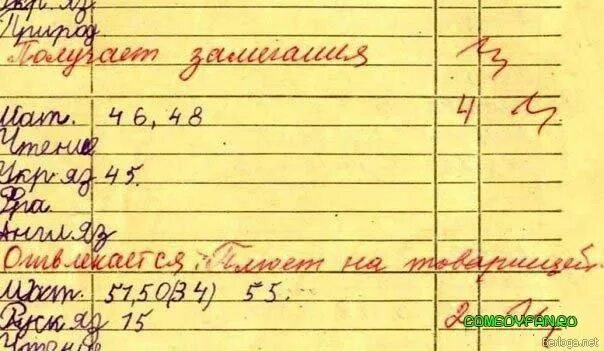 Укр. яз
Природ
Получает замечания
Мат. 46, 48 4
Чтение
Укр. яз 45.
Фра.
Англ яз
Отвлекается. Плюет на товарищей.
Мат. 51,50(34) 55.
Русск яз 15 2
Чтение
COMBOYFAN.RO
Berloga.net